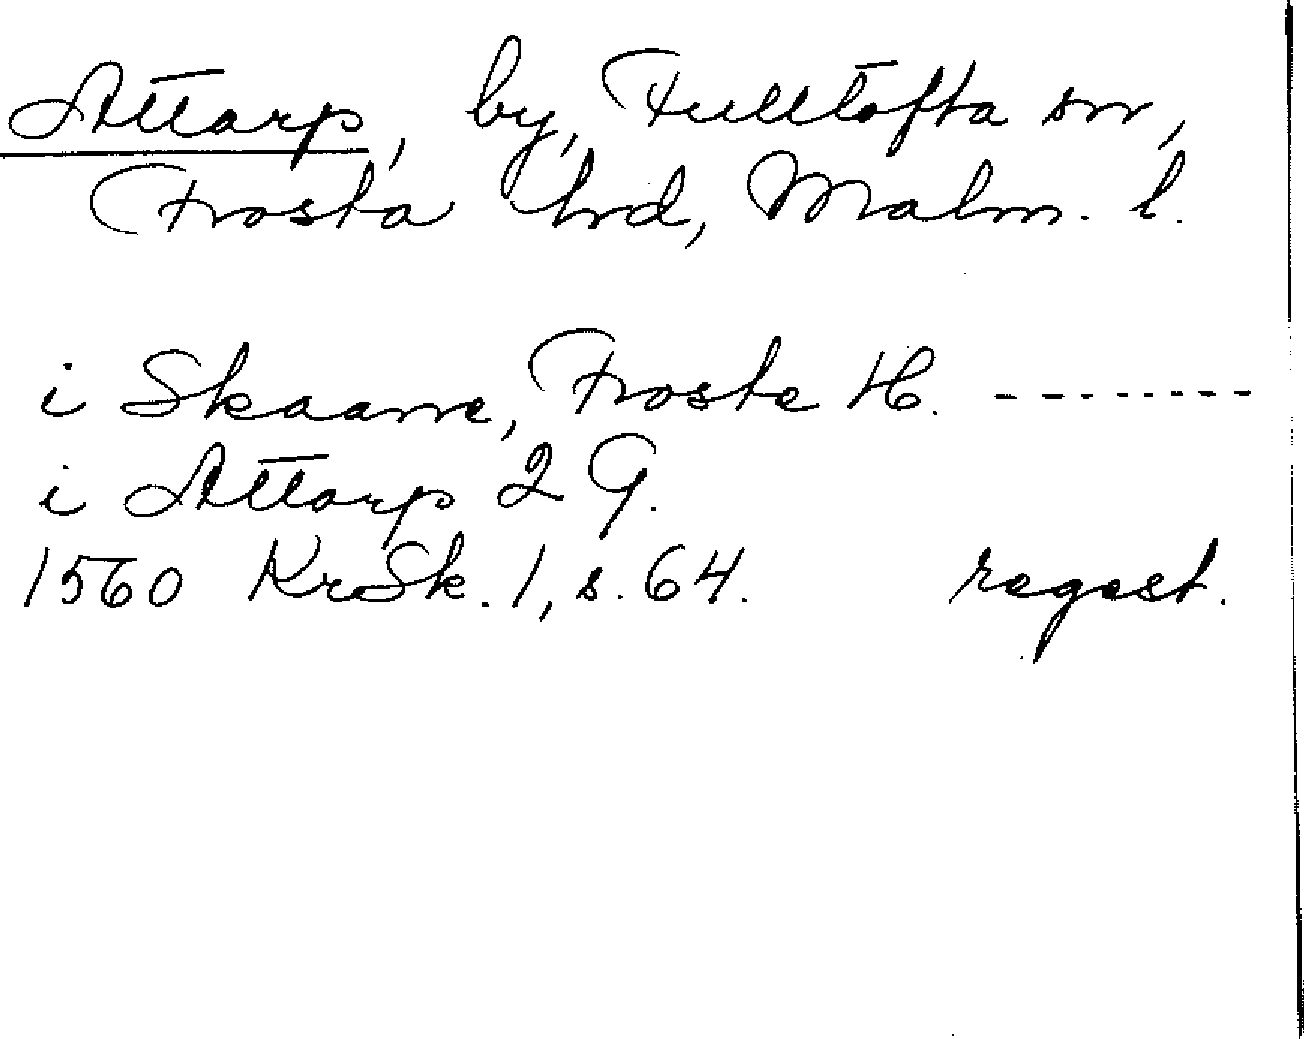 Attarp, by, Fulltofta sn,
Frosta hrd, Malm. l.
i Skaane, Froste H. --------
i Attarp 2 G.
1560 KrSk. 1, s. 64. regest.